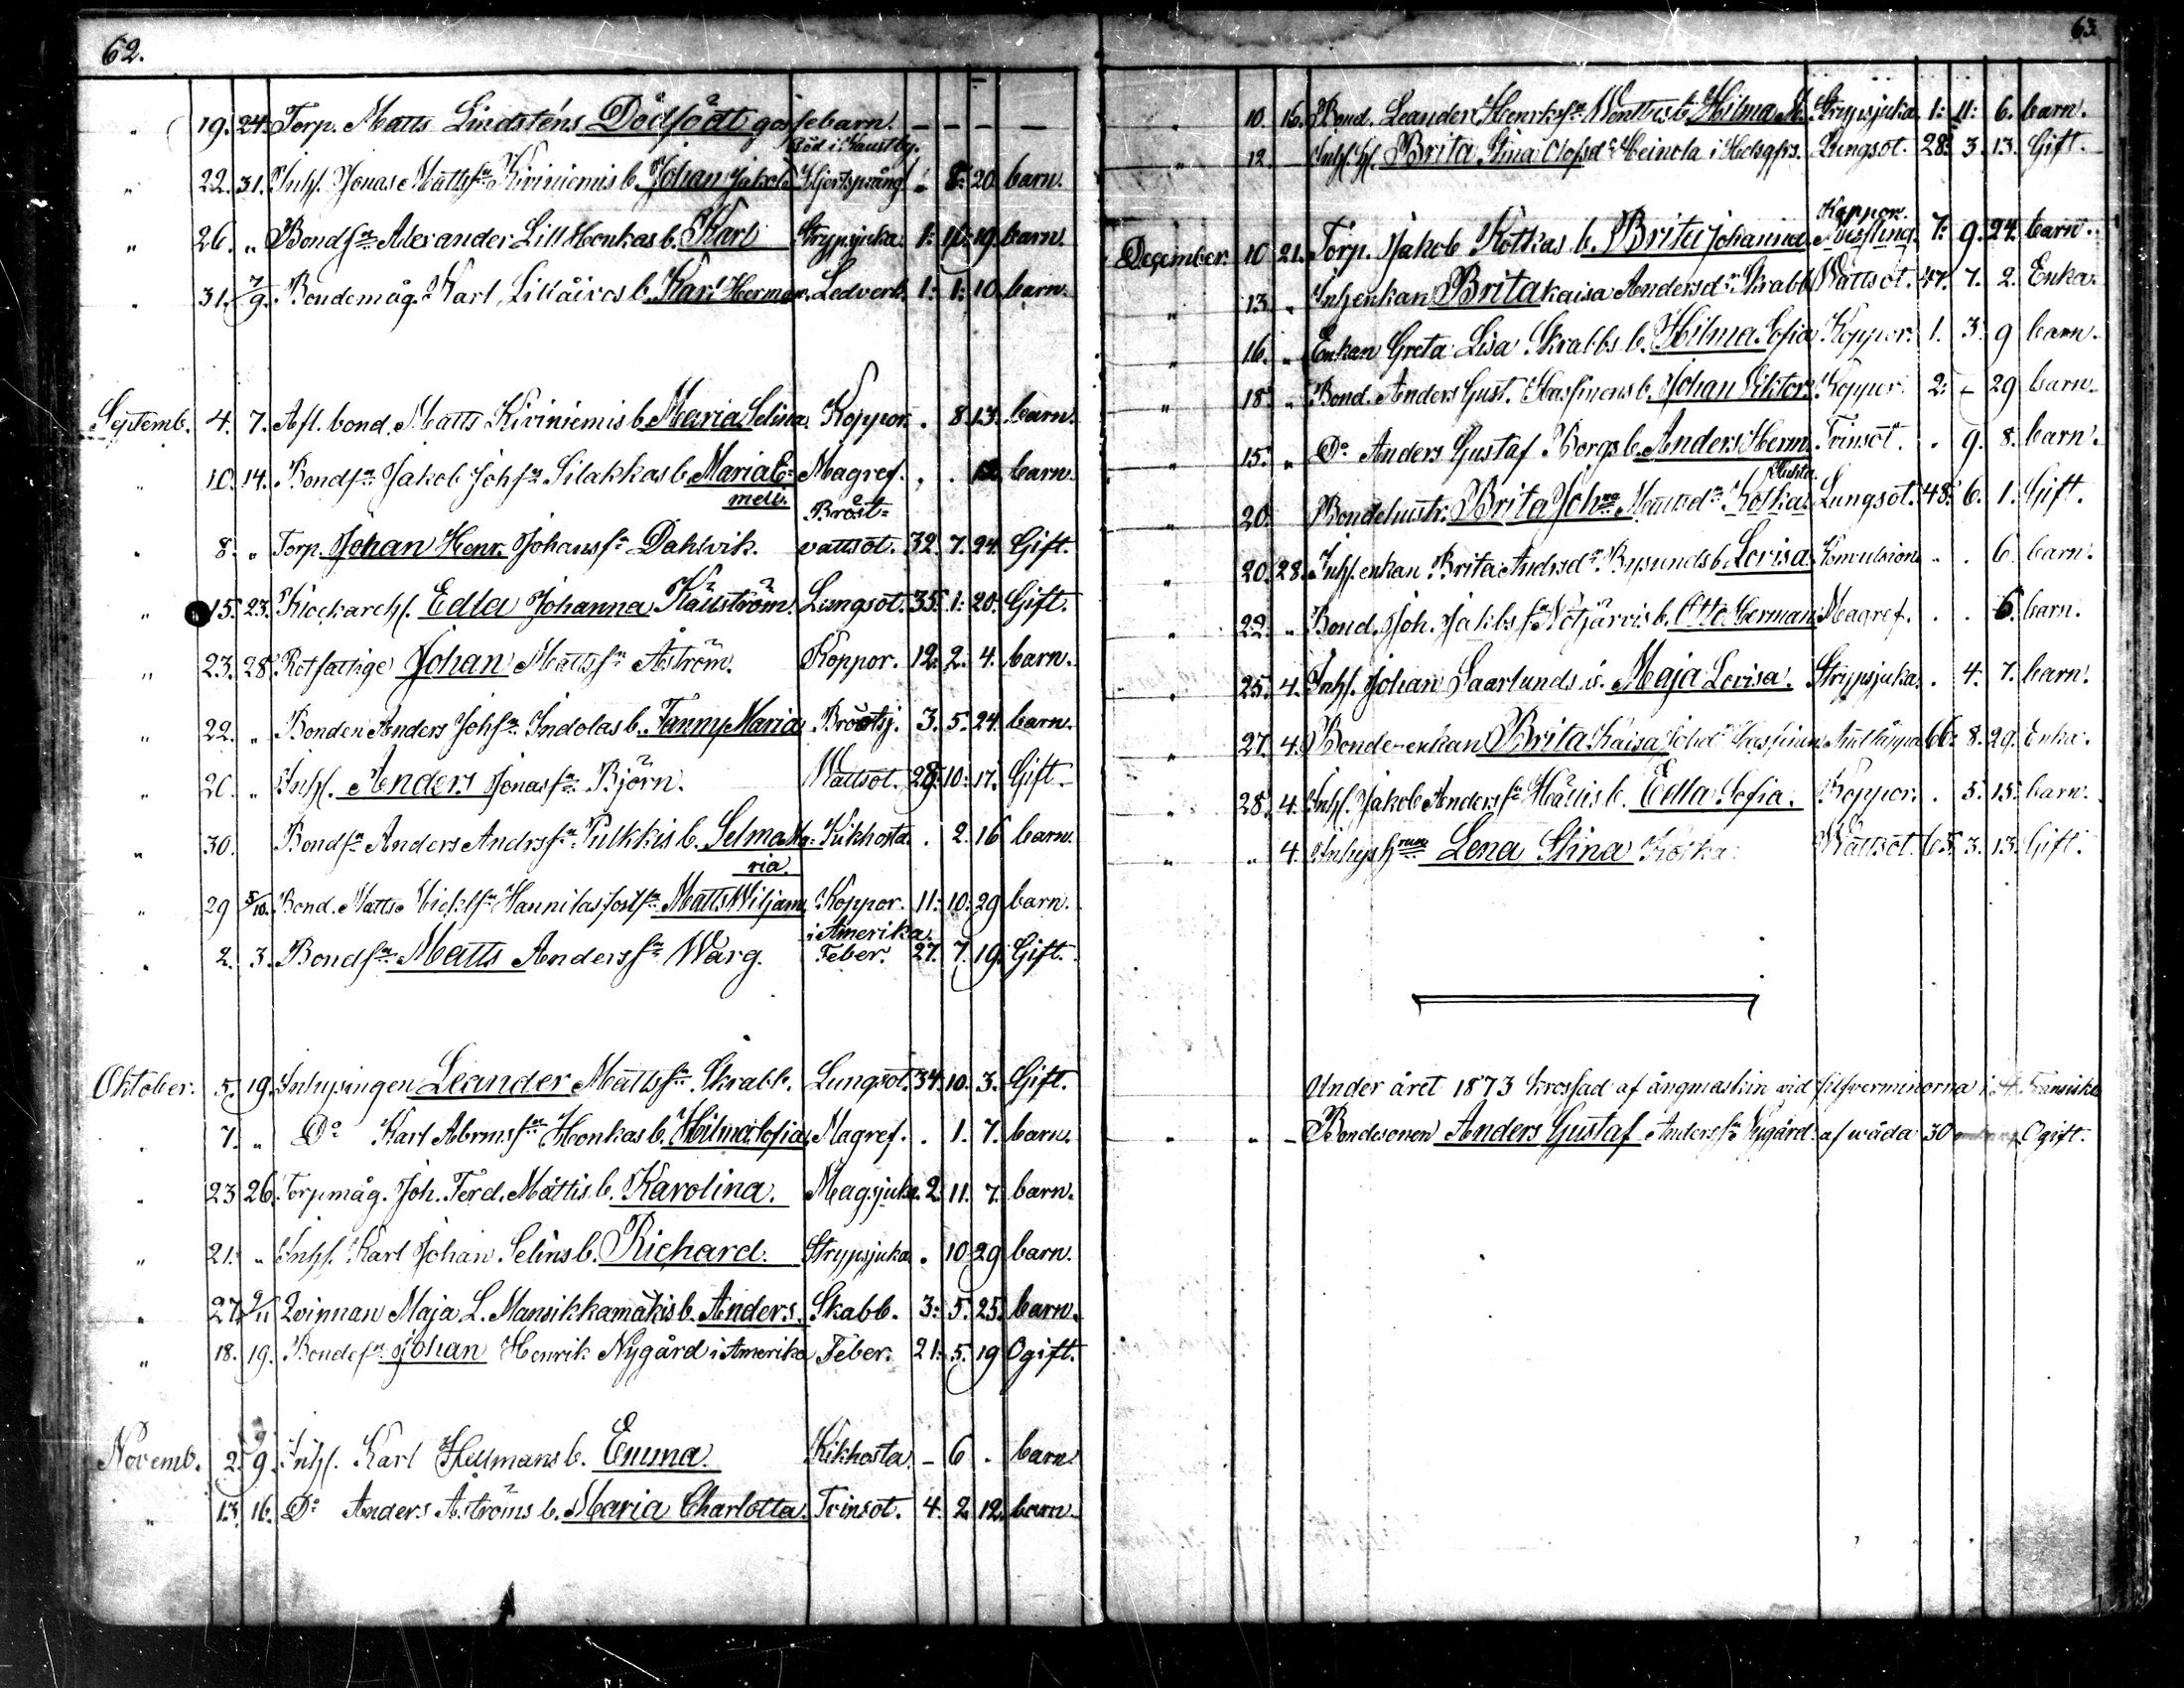 62.
" 19. 24. Torp. Matts Lindsténs Dödfödt gossebarn. — — — —
död i Kaustby.
" 22. 31. Inhs. Jonas Mattss:n Kiviniemis b. Johan Jakob Hjertsprång - 8: 20. barn.
" 26. " Bonds:n Alexander Lill Honkas b. Karl Strypsjuka. 1: 10. 19. barn.
" 31. 7/9. Bondemåg. Karl Lillåivos b. Karl Herman. Ledverk. 1: 1: 10. barn.
Septemb. 4. 7. Afl. bond. Matts Kiviniemis b. Maria Selina. Koppor. . 8. 13. barn.
" 10. 14. Bonds:n Jakob Johs:n Silakkas b. Maria E= Magref. . . 12. barn.
meli. Bröst=
" 8. " Torp. Johan Henr. Johanss:n Dahlvik. vattsot. 32. 7. 24. Gift.
" 15. 23. Klockareh. Edla Johanna Källström. Lungsot. 35. 1: 20. Gift.
" 23. 28. Rotfattige Johan Mattss:n Åström. Koppor. 12. 2. 4. barn.
" 22. " Bonden Anders Johs:n Indolas b. Fanny Maria Bröstsj. 3. 5. 24. barn.
" 26. " Inhs. Anders Jonass:n Björn. Wattsot. 28. 10: 17. Gift.
" 30. Bonds:n Anders Andrss:n Pulkkis b. Selma Ma= Kikhosta. . 2. 16 barn.
ria.
" 29 5/10. Bond. Matts Mickls:n Hannilas fosts:n Matts Wiljam, Koppor. 11: 10: 29 barn.
i Amerika.
" 2. 3. Bonds:n Matts Anderss:n Warg. Feber. 27. 7. 19. Gift.
Oktober. 5. 19. Inhysingen Leander Mattss:n Skrabb. Lungsot. 34. 10. 3. Gift.
" 7. " D:o Karl Abrmss:n Honkas b. Hilma Sofia Magref. . 1. 7. barn.
" 23 26. Torpmåg. Joh. Ferd. Mattis b. Karolina. Magsjuka. 2. 11. 7. barn.
" 21. " Inhs. Karl Johan Selins b. Richard. Strypsjuka . 10 29 barn.
" 27. 2/11 Qvinnan Maja L. Mansikkamäkis b. Anders. Skabb. 3: 5. 25. barn.
" 18. 19. Bondes:n Johan Henrik Nygård i Amerika Feber. 21: 5. 19 Ogift.
Novemb. 2. 9. Inhs. Karl Hellmans b. Emma. Kikhosta. - 6 . barn.
" 13. 16. D:o Anders Åströms b. Maria Charlotta. Tvinsot. 4. 2. 12. barn.
63.
" 10. 16. Bond. Leander Henrikss:n Wentus b. Hilma M. Strypsjuka 1: 11: 6. barn.
" 12. — Inhs. h. Brita Stina Olofsd:r Heinola i Helsgfrs. Lungsot. 28. 3. 13. Gift.
Koppor.
December. 10 21. Torp. Jakob Kotkas b. Brita Johanna. Messling. 7: 9. 24. barn.
" 13. " Inhenkan Brita kaisa Andersd:r Skrabb Wattsot. 47. 7. 2. Enka.
" 16. " Enkan Greta Lisa Skrabbs b. Hilma Sofia Koppor. 1. 3. 9 barn.
" 18. " Bond. Anders Gust. Hassinens b. Johan Viktor. Koppor. 2: - 29 barn.
" 15. " D:o Anders Gustaf Borgs b. Anders Herm. Tvinsot. . 9. 8. barn.
" 20. Bondehustr. Brita Joh:na Mattsd:r Kotka. Lungsot. 48. 6. 1. Gift.
" 20. 28. Inhs. enkan Brita Andrsd:r Bysunds b. Lovisa Konvulsion . . 6. barn.
" 22. " Bond. Joh. Jakobs:n Nötjärvis b. Otto Herman Magref. . . 6. barn.
" 25. 4. Inhs. Johan Saarlunds b. Maja Lovisa. Strypsjuka. . 4. 7. barn.
" 27. 4. Bonde-enkan Brita Kaisa Johd:r Hassinen Andtäppa 66. 8. 29. Enka.
" 28. 4. Inhs. Jakob Anderss:n Hällis b. Edla Sofia. Koppor. . 5. 15. barn.
" " 4. Inhysh:run Lena Stina Kotka. Wattsot. 65. 3. 13. Gift.
Under året 1873 krossad af ångmaskin vid silfverminorna i
" " — Bondesonen Anders Gustaf Anderss:n Nygård af våda 30 Ogift.